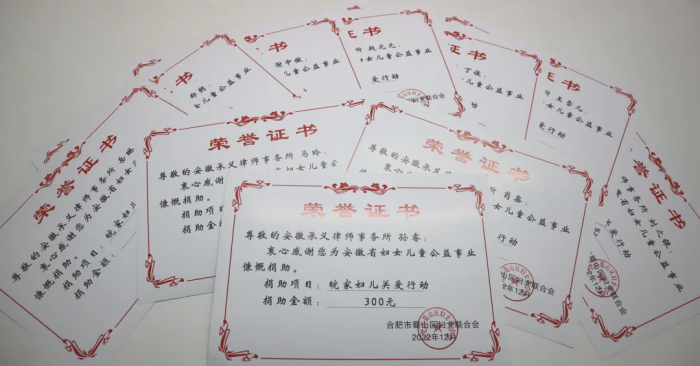 荣誉证书
尊敬的安徽承义律师事务所 孙睿:
衷心感谢您为安徽省妇女儿童公益事业
慷慨捐助。
捐助项目: 皖家妇儿关爱行动
捐助金额: 300元
合肥市蜀山区妇女联合会
2022年12月
荣誉证书
尊敬的安徽承义律师事务所 马玲:
衷心感谢您为安徽省妇女儿童公
慷慨捐助。
捐助项
捐助金
荣誉证书
尊敬的安徽承义律师事务所
衷心感谢您为安徽省妇女
慷慨捐助。
捐助项目: 皖家妇
捐助金额:
荣誉证书
尊敬的安徽承义律师事务所 肖鑫:
女儿童公益事业
行动
山区妇女联合会
2022年12月
证书
妇女儿童公益事业
关爱行动
证书
女儿童公益事业
证书
儿童公益事业
证书
所 赵元元:
女儿童公益事业
爱行动
证书
丁俊:
儿童公益事业
证书
公益事业
行动